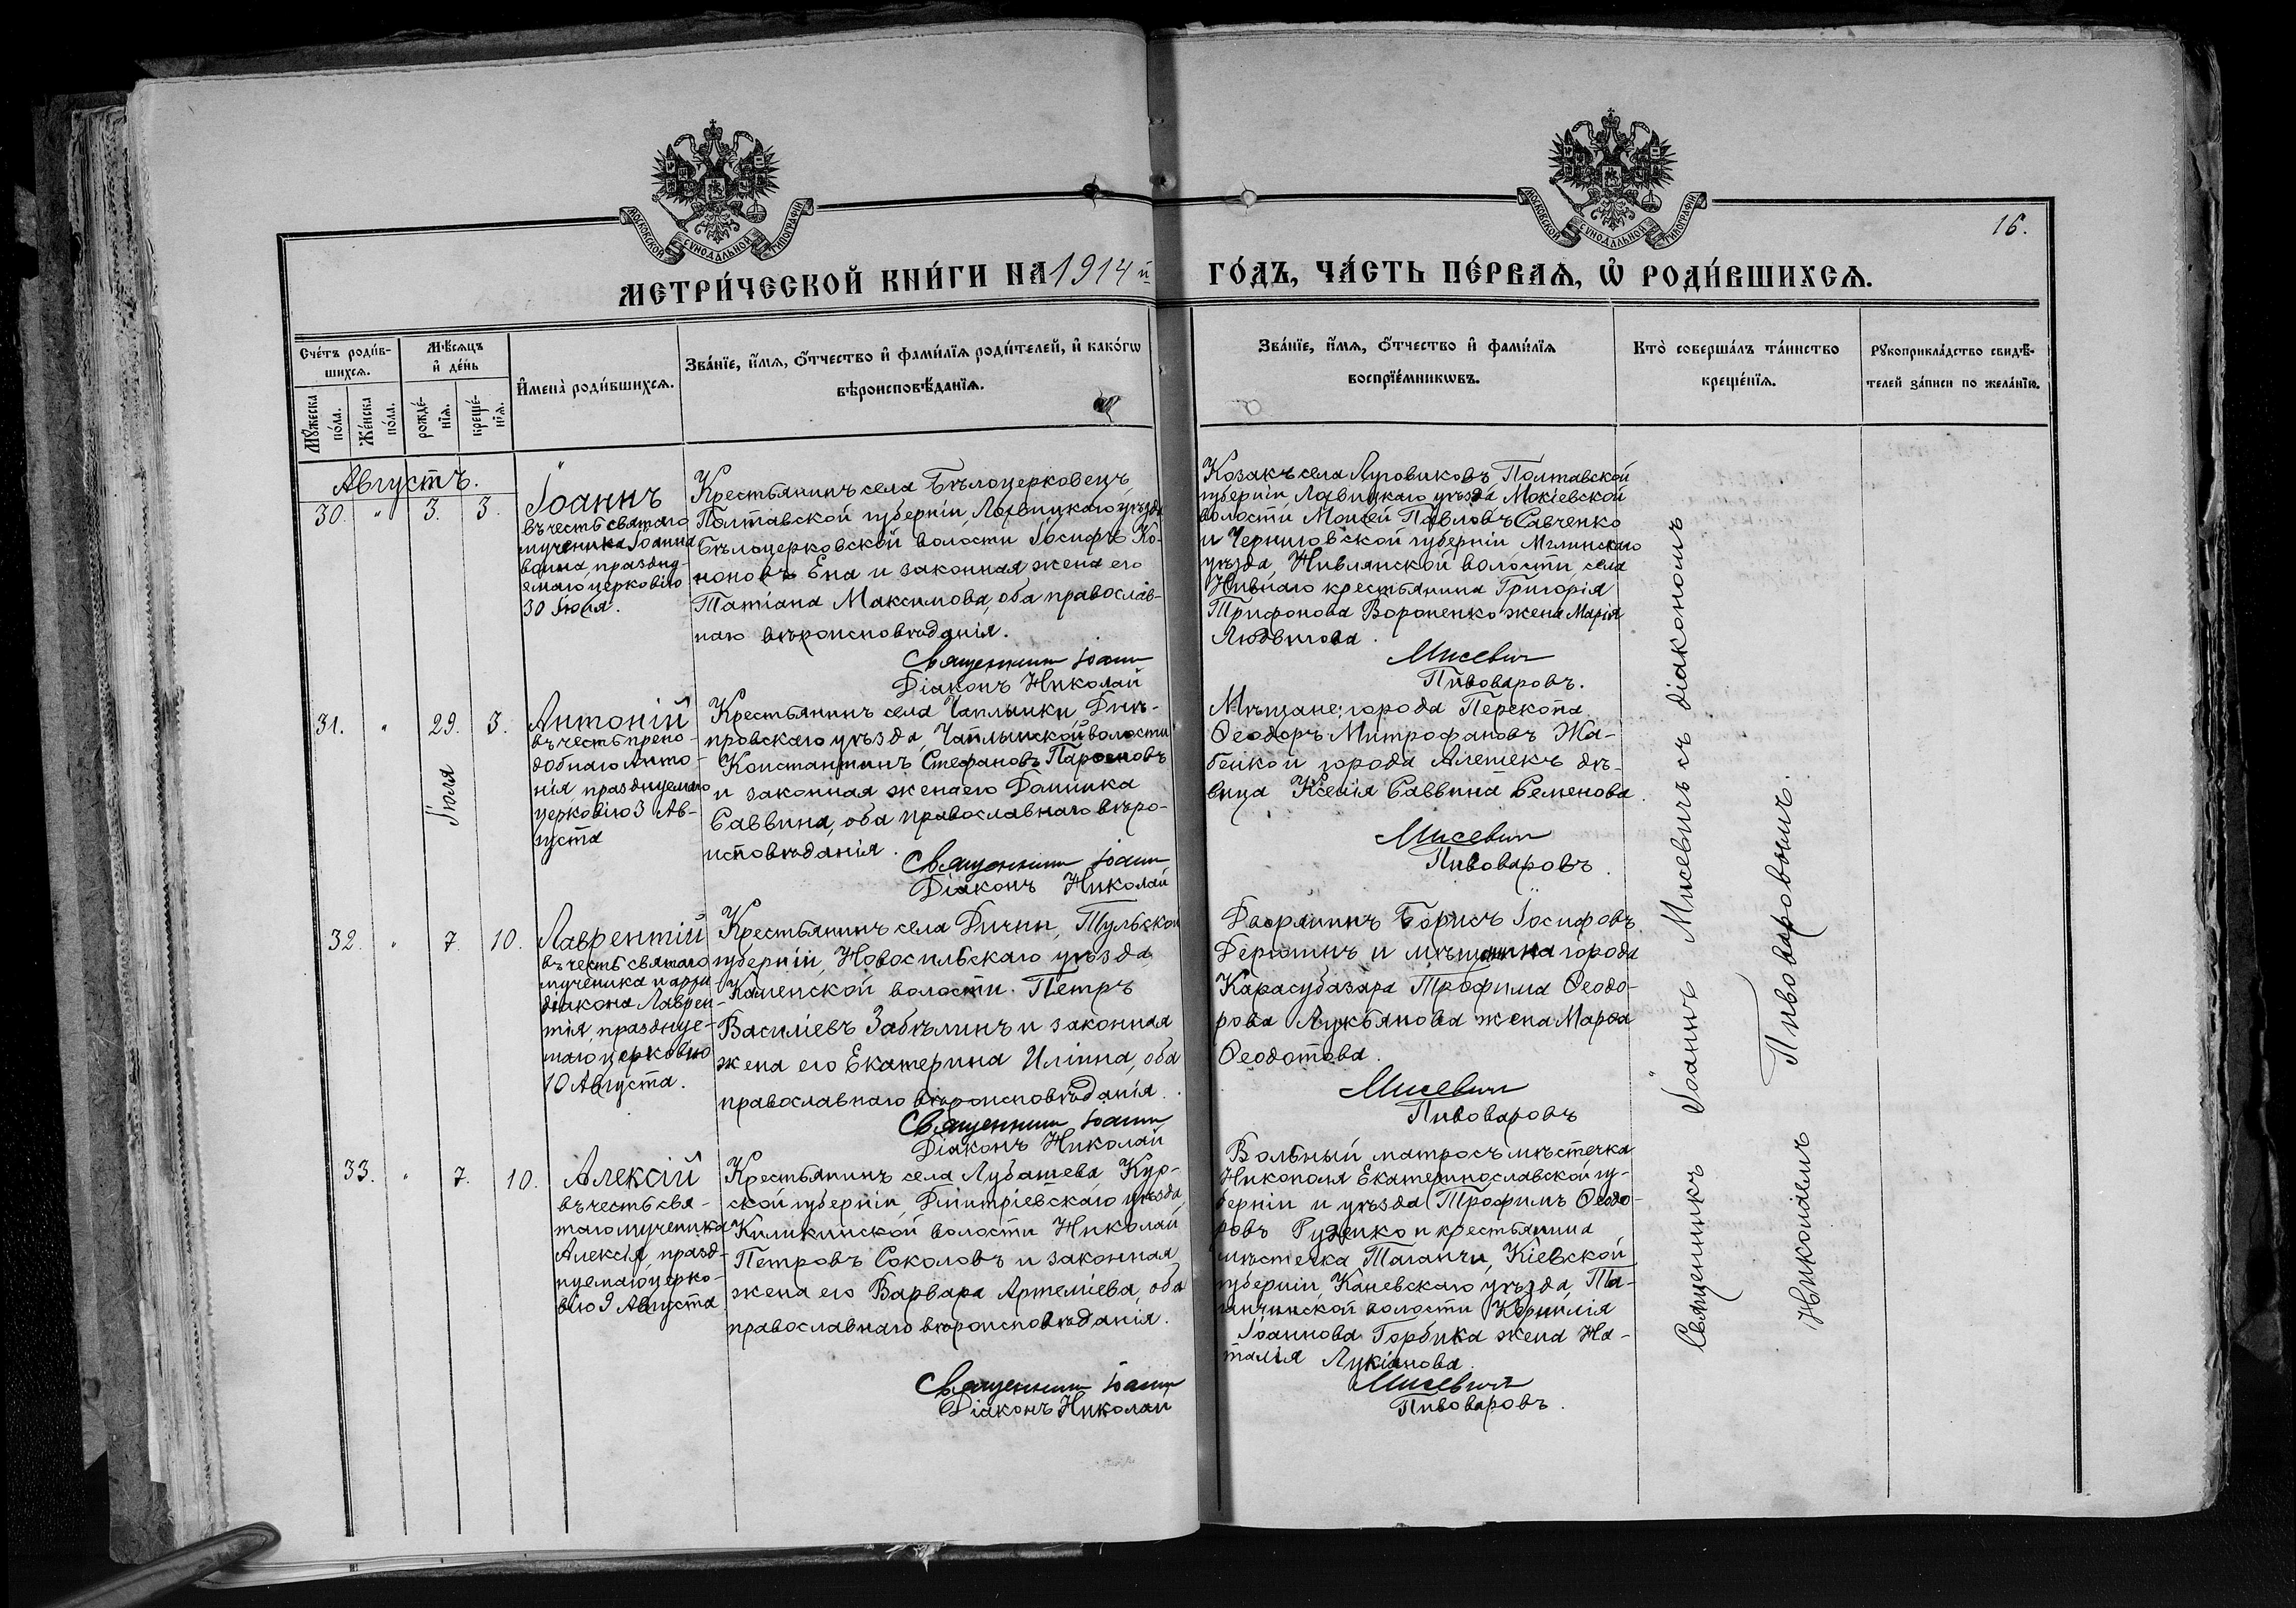 МОСКОВСКОЙ СѴНОДАЛЬНОЙ ТИПОГРАФІИ
МОСКОВСКОЙ СѴНОДАЛЬНОЙ ТИПОГРАФІИ
16.
МЕТРИ́ЧЕСКОЙ КНИ́ГИ НА 1914й ГО́ДЪ, ЧА́СТЬ ПЕ́РВАѦ, Ѡ҆ РОДИ́ВШИХСѦ.
Сче́тъ роди́в-
шихсѧ.
Мꙋ́жеска
по́ла.
Же́нска
по́ла.
Мѣ́сѧцъ
и҆ де́нь
рожде́-
нїѧ.
креще́-
нїѧ.
И҆мена̀ роди́вшихсѧ.
Зва́нїе, и҆́мѧ, ѻ҆́тчество и҆ фами́лїѧ роди́телей, и҆ како́гѡ
вѣроисповѣ́данїѧ.
Зва́нїе, и҆́мѧ, ѻ҆́тчество и҆ фами́лїѧ
воспрїе́мникѡвъ.
Кто̀ соверша́лъ та́инство
креще́нїѧ.
Рꙋкоприкла́дство свидѣ́-
телей за́писи по жела́нїю.
Августъ.
30. " 3. 3.
Іоаннъ
въ честь святаго
мученика Іоанна
воина, праздну-
емаго церковію
30 Іюля.
Крестьянинъ села Бѣлоцерковецъ
Полтавской губерніи, Лохвицкаго уѣзда
Бѣлоцерковской волости Іосифъ Ко-
ноновъ Ена и законная жена его
Татіана Максимова, оба православ-
наго вѣроисповѣданія.
Священникъ Іоаннъ
Діаконъ Николай
Козакъ села Луговиковъ, Полтавской
губерніи Лохвицкаго уѣзда, Мокіевской
волости Моисей Павловъ Савченко
и Черниговской губерніи Мглинскаго
уѣзда, Нивлянской волости села
Нивнаго крестьянина Григорія
Трифонова Вороненко жена Марія
Людвигова.
Мисевичъ
Пивоваровъ.
31. " 29. 3.
Іюля
Антоній
въ честь препо-
добнаго Анто-
нія празднуемаго
церковію 3 Ав-
густа
Крестьянинъ села Чаплынки Днѣ-
провскаго уѣзда, Чаплынской волости
Константинъ Стефановъ
и законная жена его Домника
Саввина, оба православнаго вѣро-
исповѣданія.
Священникъ Іоаннъ
Діаконъ Николай
Мѣщане: города Перекопа
Ѳеодоръ Митрофановъ Жа-
бецкой города Алешекъ дѣ-
вица Ксенія Саввина Семенова.
Мисевичъ
Пивоваровъ.
32. " 7. 10.
Лаврентій
въ честь святаго
мученика и архи-
діакона Лаврен-
тія, праздуе-
маго церковію
10 Августа.
Крестьянинъ села Дични, Тульской
губерніи, Новосильскаго уѣзда,
Каменской волости. Петръ
Василіевъ Забѣлинъ и законная
жена его Екатерина Иліина, оба
православнаго вѣроисповѣданія.
Священникъ Іоаннъ
Діаконъ Николай
Дворянинъ Борисъ Іосифовъ
Дерюгинъ и мѣщанина города
Карасубазара Трофима Ѳеодо-
рова Лукьянова жена Марѳа
Ѳеодотова.
Мисевичъ
Пивоваровъ
33. " 7. 10.
Алексій
въ честь свя-
таго мученика
Алексія, празд-
нуемаго церко-
вію 9 Августа
Крестьянинъ села Лубашева Кур-
ской губерніи, Дмитріевскаго уѣзда,
Киликинской волости Николай
Петровъ Соколовъ и законная
жена его Варвара Артеміева, оба
православнаго вѣроисповѣданія.
Священникъ Іоаннъ
Діаконъ Николай
Вольный матросъ мѣстечка
Никополя Екатеринославской гу-
берніи и уѣзда Трофимъ Ѳеодо-
ровъ Руденко и крестьянина
мѣстечка Таганчи, Кіевской
губерніи, Каневскаго уѣзда, Та-
ганчинской волости Корнилія
Іоаннова Горбика жена На-
талія Лукіанова.
Мисевичъ
Пивоваровъ.
Священникъ Іоаннъ Мисевичъ съ діакономъ
Николаемъ Пивоваровымъ.